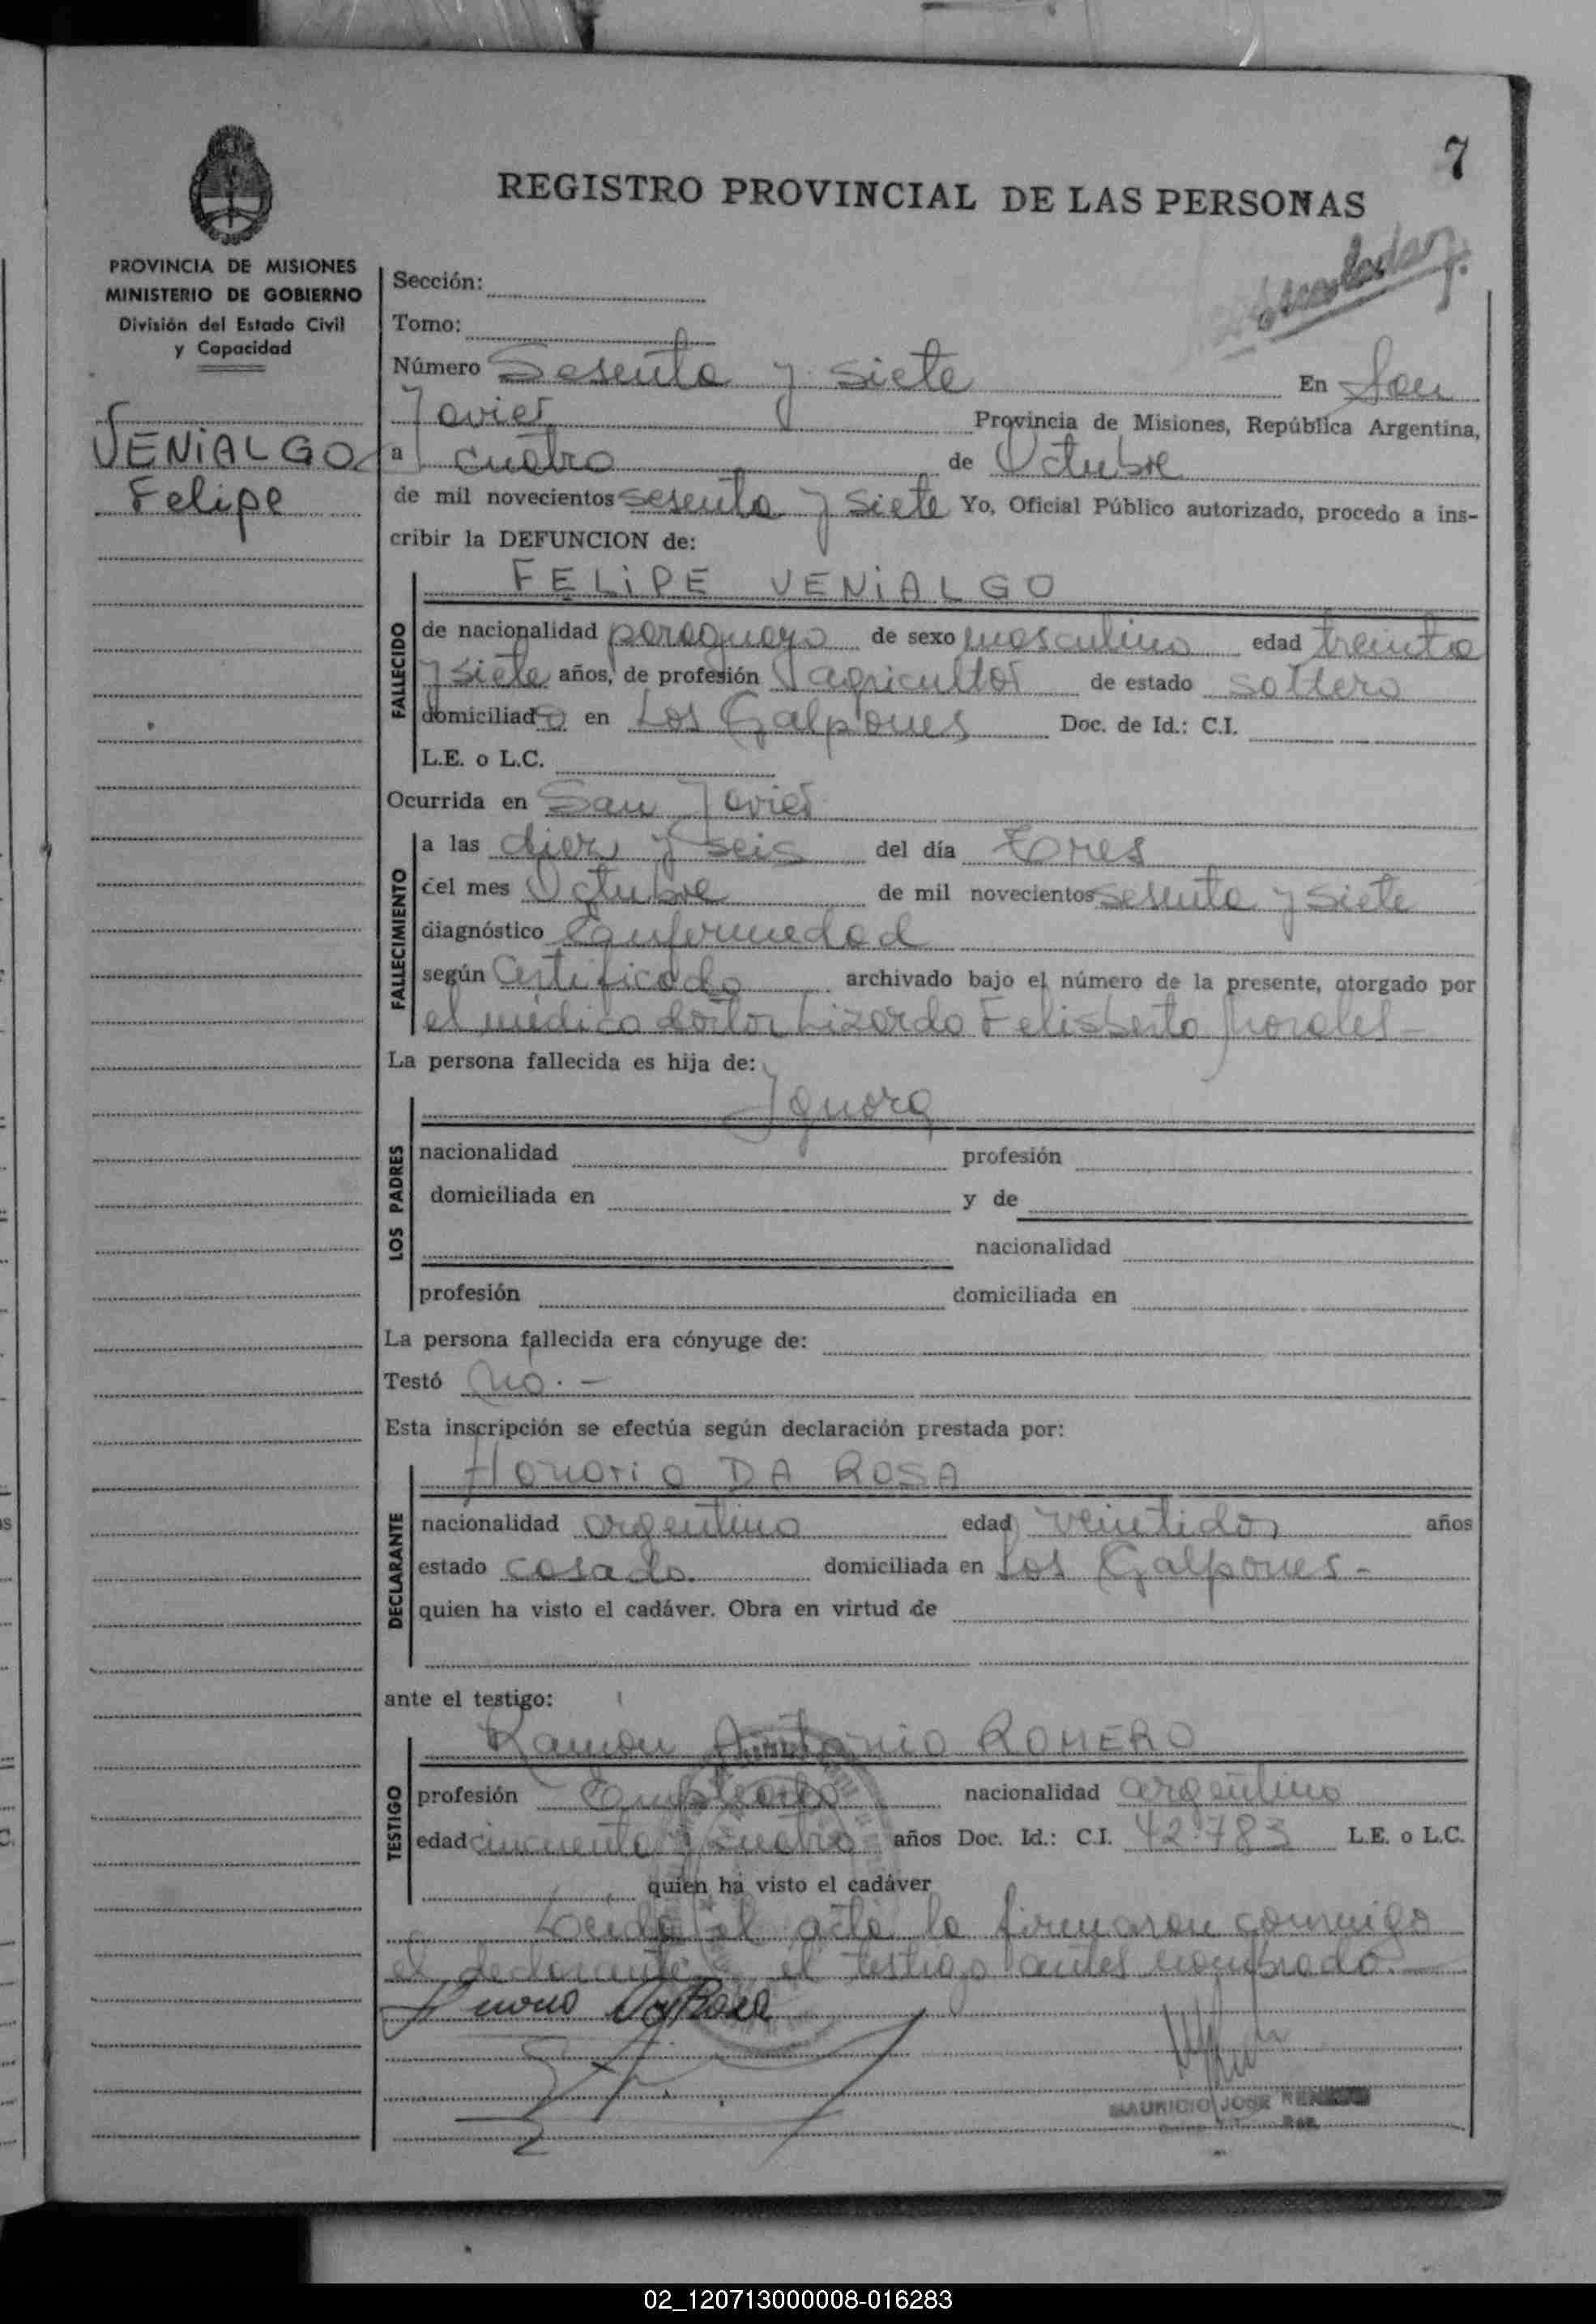 7
REGISTRO PROVINCIAL DE LAS PERSONAS
PROVINCIA DE MISIONES
MINISTERIO DE GOBIERNO
División del Estado Civil
y Capacidad
VENIALGO
Felipe
Sección:
Tomo:
Número Sesenta y siete En San
Javier Provincia de Misiones, República Argentina,
a cuatro de Octubre
de mil novecientos sesenta y siete Yo, Oficial Público autorizado, procedo a ins-
cribir la DEFUNCION de:
FELIPE VENIALGO
FALLECIDO
de nacionalidad paraguayo de sexo masculino edad treinta
y siete años, de profesión agricultor de estado soltero
domiciliado en Los Galpones Doc. de Id.: C.I.
L.E. o L.C.
Ocurrida en San Javier
FALLECIMIENTO
a las diez y seis del día tres
del mes Octubre de mil novecientos sesenta y siete
diagnóstico Enfermedad
según Certificado archivado bajo el número de la presente, otorgado por
el médico doctor Lizardo Felisberto Morales-
La persona fallecida es hija de:
Ignora
LOS PADRES
nacionalidad profesión
domiciliada en y de
nacionalidad
profesión domiciliada en
La persona fallecida era cónyuge de:
Testó no.-
Esta inscripción se efectúa según declaración prestada por:
Honorio DA ROSA
DECLARANTE
nacionalidad argentino edad veintidos años
estado casado domiciliada en Los Galpones-
quien ha visto el cadáver. Obra en virtud de
ante el testigo:
Ramón Antonio ROMERO
TESTIGO
profesión Empleado nacionalidad argentino
edad cincuenta y cuatro años Doc. Id.: C.I. 42.783 L.E. o L.C.
quien ha visto el cadáver
Leida el acta la firmaron conmigo
el declarante y el testigo antes nombrado.-
Da Rosa
MAURICIO JOSE
02_120713000008-016283